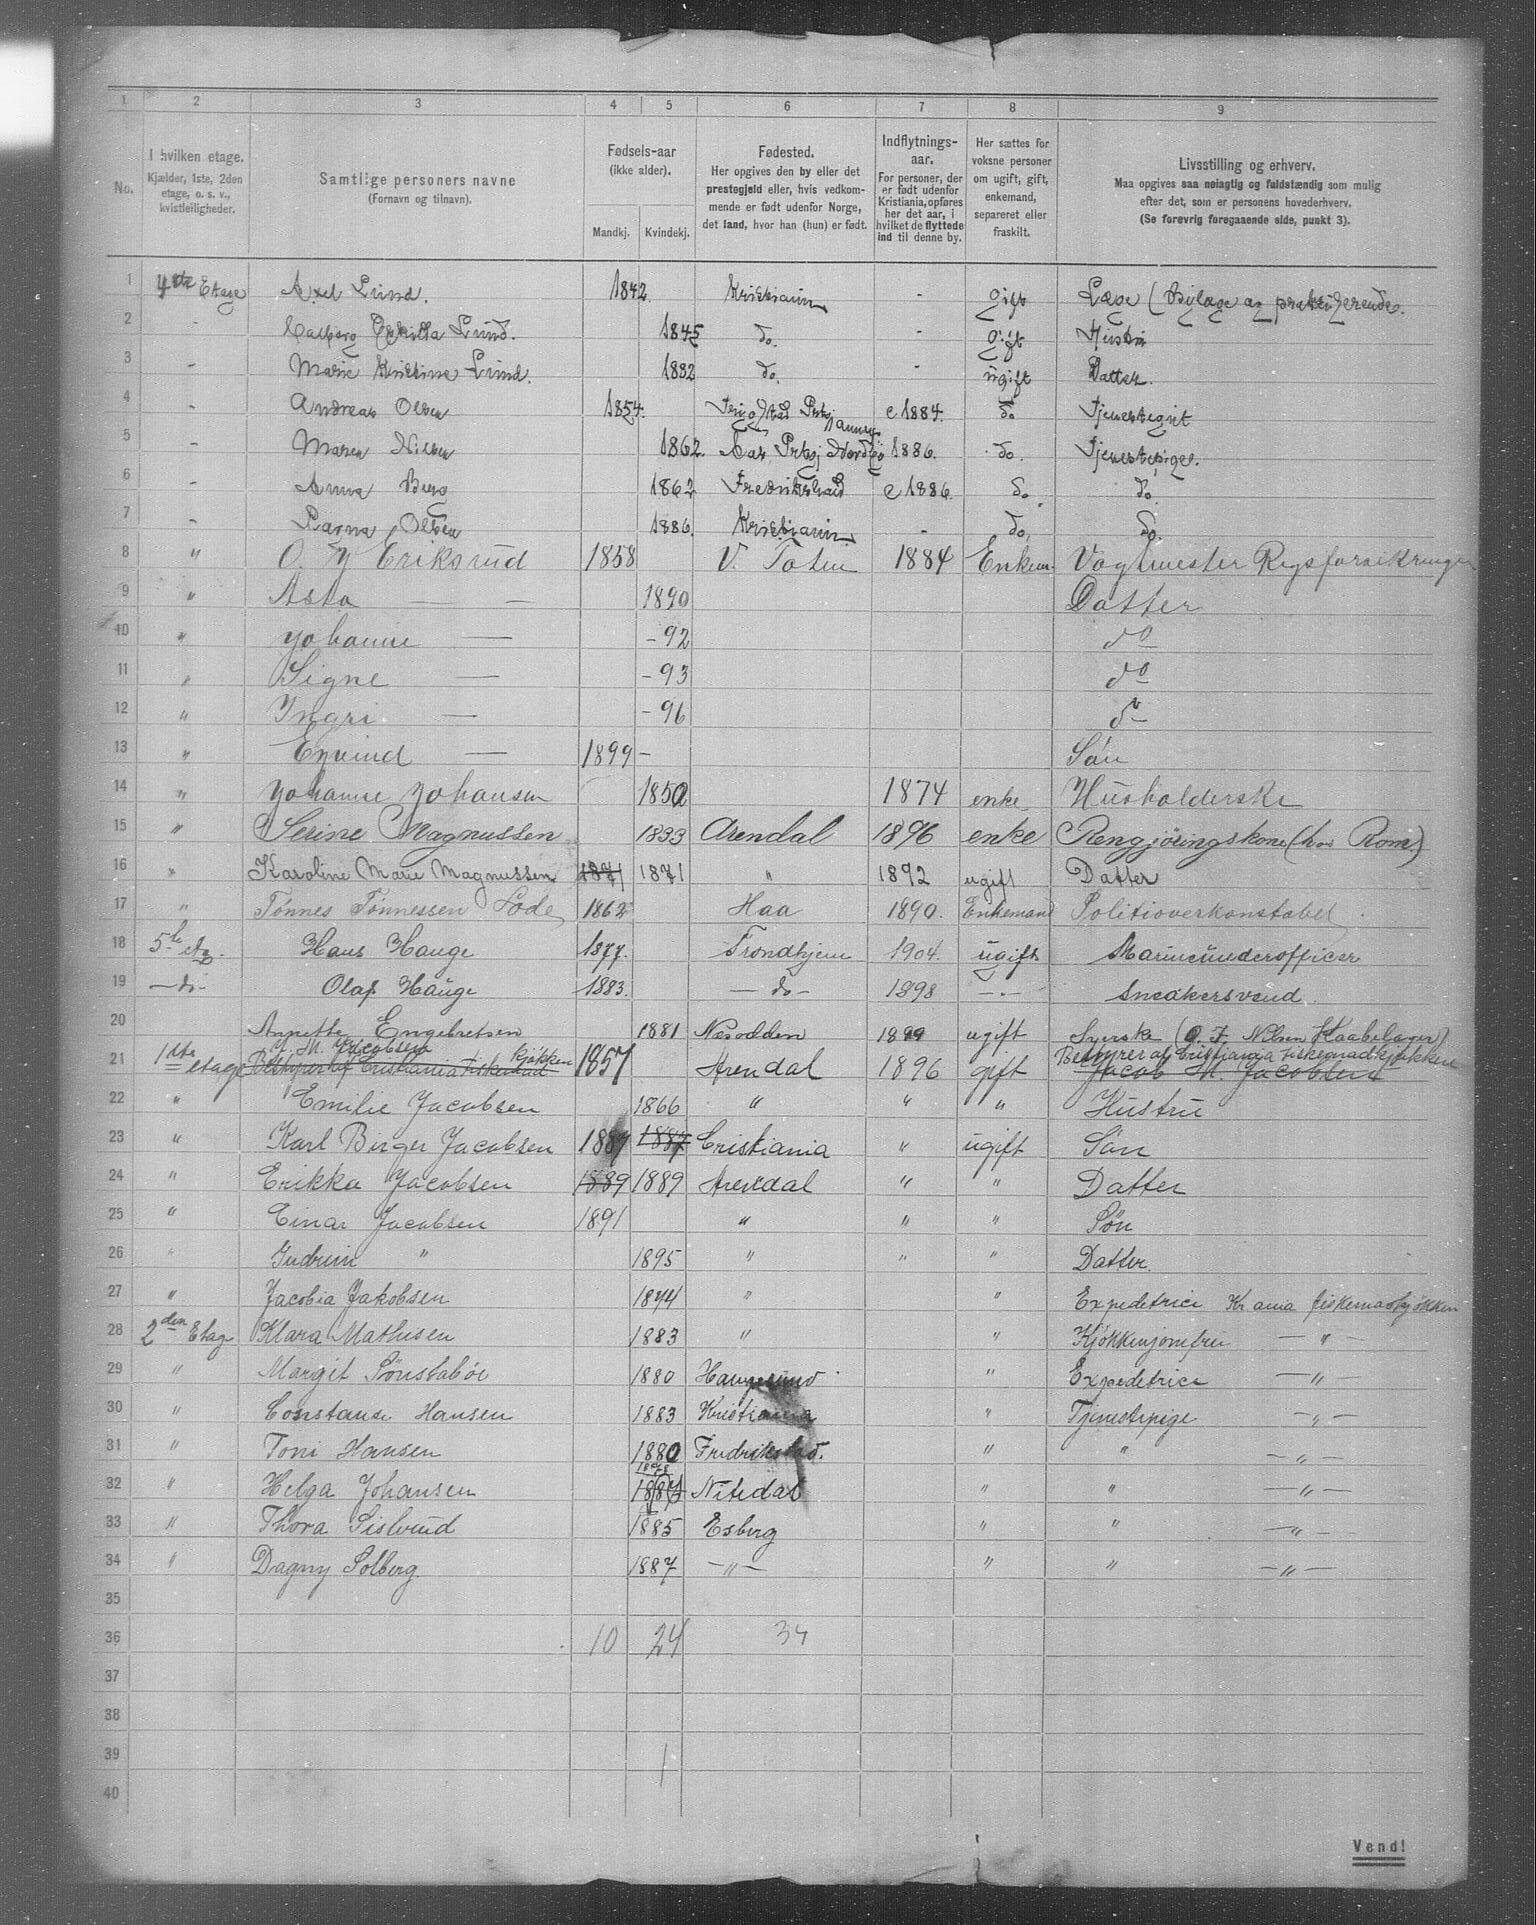 1 2 3 4 5 6 7 8 9
No.
I hvilken etage.
Kjælder, 1ste, 2den
etage, o. s. v.,
kvistleiligheder.
Samtlige personers navne
(Fornavn og tilnavn).
Fødsels-aar
(ikke alder).
Mandkj. Kvindekj.
Fødested.
Her opgives den by eller det
prestegjeld eller, hvis vedkom-
mende er født udenfor Norge,
det land, hvor han (hun) er født.
Indflytnings-
aar.
For personer, der
er født udenfor
Kristiania, opføres
her det aar, i
hvilket de flyttede
ind til denne by.
Her sættes for
voksne personer
om ugift, gift,
enkemand,
separeret eller
fraskilt.
Livsstilling og erhverv.
Maa opgives saa nøiagtig og fuldstændig som mulig
efter det, som er personens hovederhverv.
(Se forøvrig foregaaende side, punkt 3).
1 4de Etage Axel Lund. 1842. Kristiania - gift Læge (
2 - Lund. 1845 do. - gift Hustru
3 - Marie Kristine Lund. 1882 do. - ugift Datter.
4 - Andreas Olsen 1854. c 1884. do Tjenestegut
5 - Maren Nilsen 1862. 1886. do. Tjenestepige.
6 - Anna Berg 1862 Fredrikshald c 1886. do. do.
7 - Olsen 1886. Kristiania. - do. do.
8 " O. Eriksrud 1858 V. Toten 1884 Enkem. Vagtmester
9 " Asta — 1890 Datter
10 " Johanne — - 92 do
11 " Signe — - 93 do
12 " Ingri — - 96 do
13 " Eyvind — 1899 - Søn
14 " Johanne Johansen 1850 1874 enke Husholderske
15 " Serine Magnussen 1833 Arendal 1896 enke Rengjøringskone (hos Rom.)
16 " Karoline Marie Magnussen 1871 1871 " 1892 ugift Datter
17 " Tønnes Tønnessen Lode 1862 Haa 1890. Enkemand Politioverkonstabel.
18 5te etg. Hans Hauge 1877. Trondhjem 1904. ugift Marineunderofficer
19 — do - Olaf Hauge 1883. — do — 1898 - " - Snedkersvend.
20 Annette Engebretsen 1881 Næsodden 1899 ugift Syerske (O. F. Nilsen Kaabelager)
21 1ste etage J. M. Jacobsen
Bestyrer af Cristiania Fiskemad kjøkken 1857 Arendal 1896 gift Bestyrer af Cristiania Fiskemadkjøkken
Jacob M. Jacobsen
22 " Emilie Jacobsen 1866 " " " Hustru
23 " Karl Birger Jacobsen 1887 1887 Cristiania " ugift Søn
24 " Erikka Jacobsen 1889 1889 Arendal " " Datter
25 " Einar Jacobsen 1891 " " " Søn
26 " Gudrun " 1895 " " " Datter.
27 " Jacobia Jakobsen 1874 " " Expeditrice Kr ania fiskemadkjøkken
28 2den Etag Klara Mathisen 1883 " " Kjøkkenjomfru — " —
29 " Margit Sønstabøe 1880 Haugesund " Expeditrice — " —
30 " Constanse Hansen 1883 Kristiania " Tjenestepige — " —
31 " Toni Hansen 1880 Fredrikstad. " " — " —
32 " Helga Johansen 1878 Nitedal " " — " —
33 " Thora 1885 Esberg " " — " —
34 " Dagny Solberg. 1887 — " — " " — " —
35
36 10 24 34
37
38
39
40
Vend!